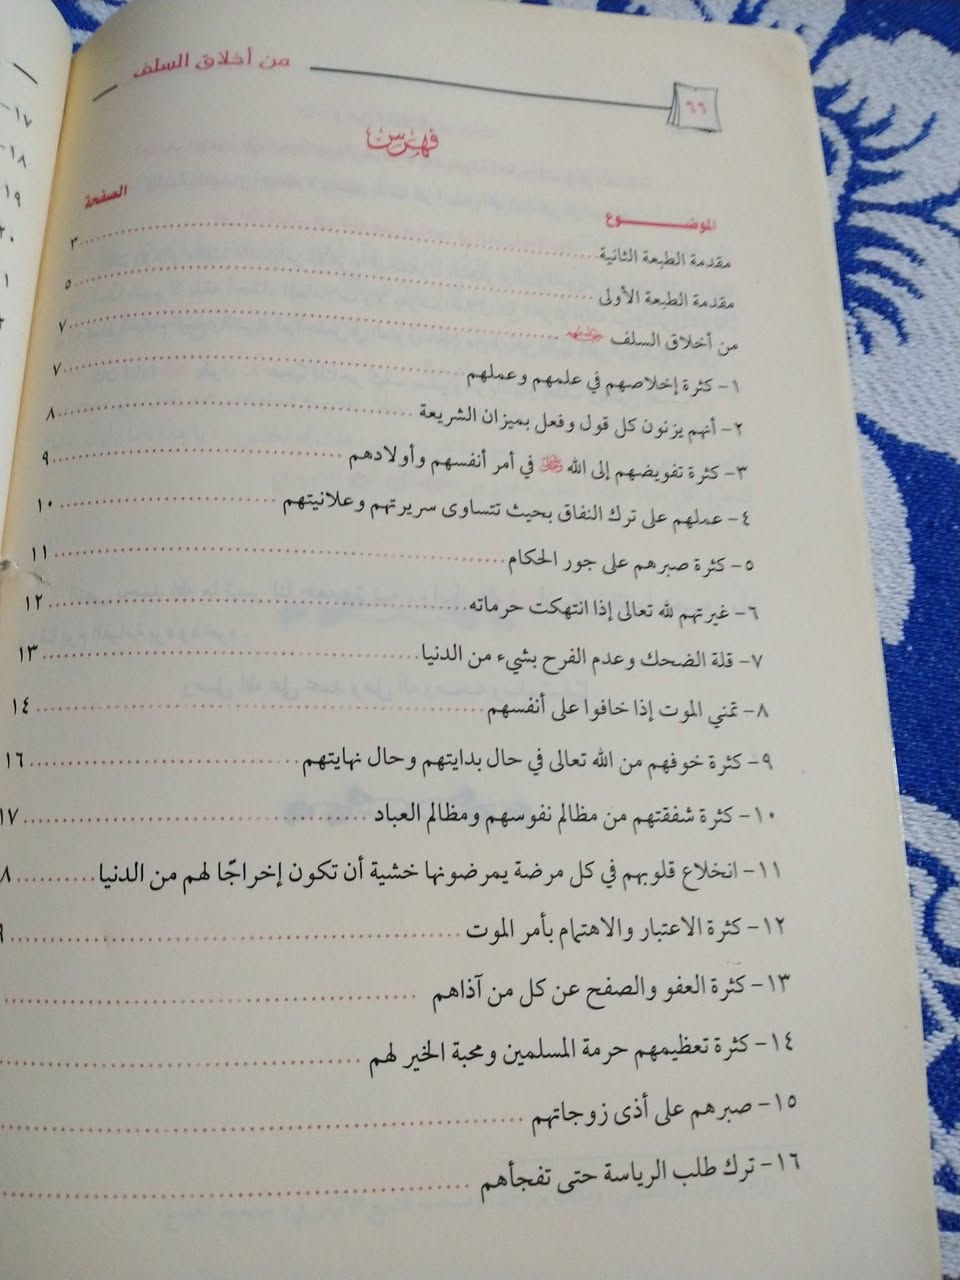 من أخلاق السلف
٦٦
فهرس
الموضوع الصفحة
مقدمة الطبعة الثانية ٣
مقدمة الطبعة الأولى ٥
من أخلاق السلف ٧
١- كثرة إخلاصهم في علمهم وعملهم ٧
٢- أنهم يزنون كل قول وفعل بميزان الشريعة ٨
٣- كثرة تفويضهم إلى الله في أمر أنفسهم وأولادهم ٩
٤- عملهم على ترك النفاق بحيث تتساوى سريرتهم وعلانيتهم ١٠
٥- كثرة صبرهم على جور الحكام ١١
٦- غيرتهم لله تعالى إذا انتهكت حرماته ١٢
٧- قلة الضحك وعدم الفرح بشيء من الدنيا ١٣
٨- تمني الموت إذا خافوا على أنفسهم ١٤
٩- كثرة خوفهم من الله تعالى في حال بدايتهم وحال نهايتهم ١٦
١٠- كثرة شفقتهم من مظالم نفوسهم ومظالم العباد ١٧
١١- انخلاع قلوبهم في كل مرضة يمرضونها خشية أن تكون إخراجًا لهم من الدنيا
١٢- كثرة الاعتبار والاهتمام بأمر الموت
١٣- كثرة العفو والصفح عن كل من آذاهم
١٤- كثرة تعظيمهم حرمة المسلمين ومحبة الخير لهم
١٥- صبرهم على أذى زوجاتهم
١٦- ترك طلب الرياسة حتى تفجأهم